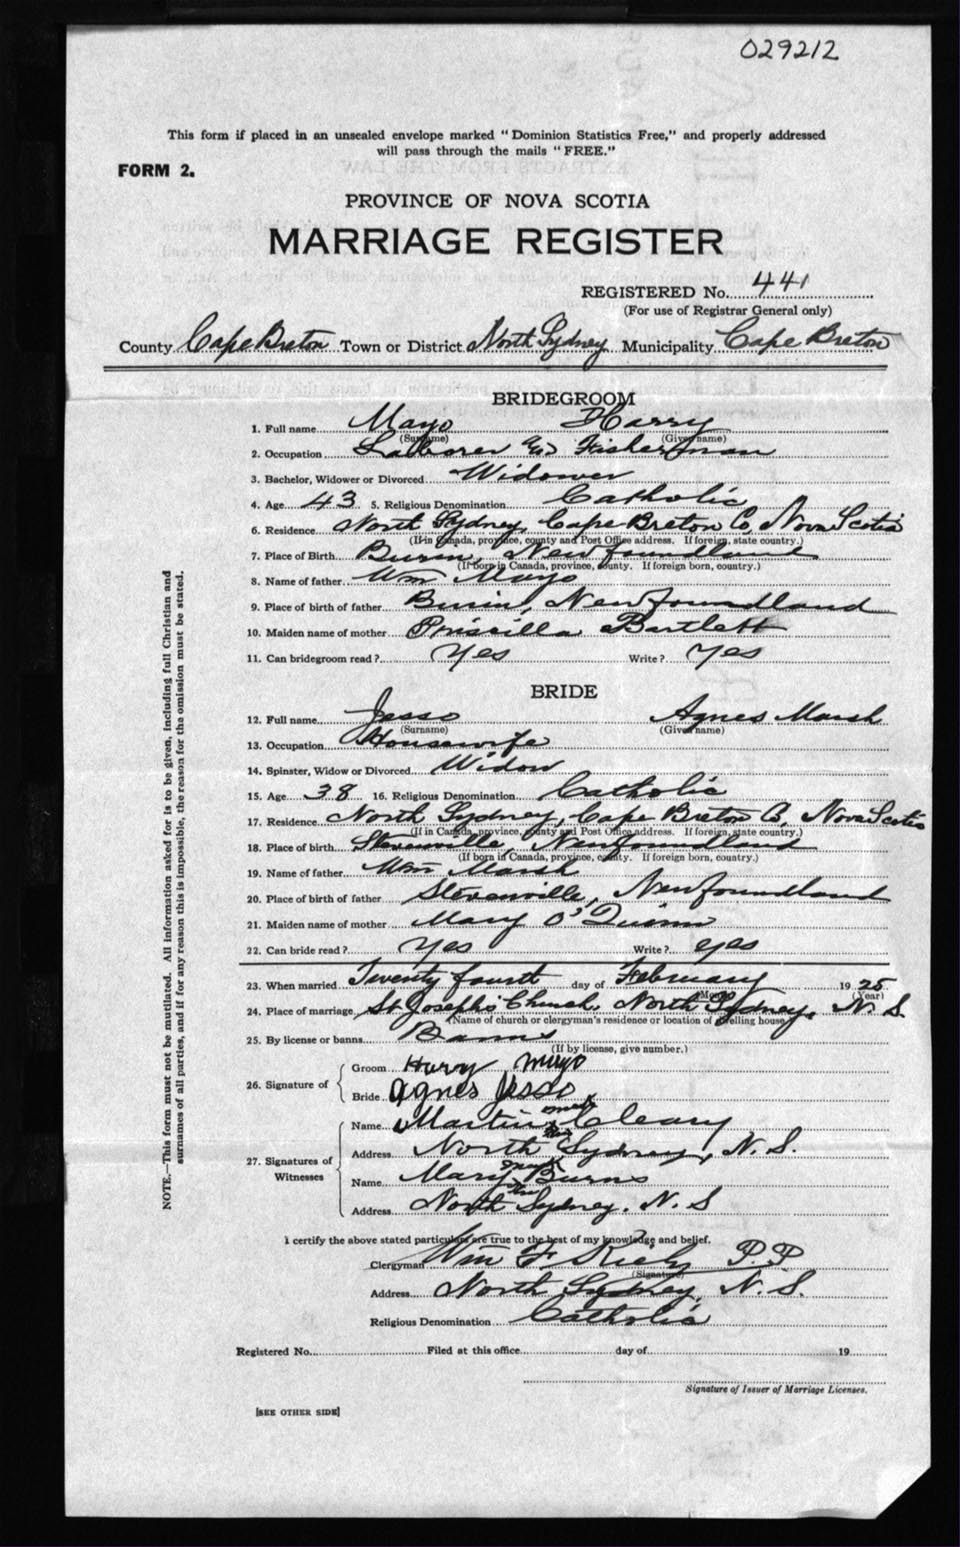 029212
This form if placed in an unsealed envelope marked "Dominion Statistics Free," and properly addressed
will pass through the mails "FREE."
FORM 2.
PROVINCE OF NOVA SCOTIA
MARRIAGE REGISTER
REGISTERED No. 441
(For use of Registrar General only)
County Cape Breton Town or District North Sydney Municipality Cape Breton
BRIDEGROOM
1. Full name Mayo Harry
(Surname) (Given name)
2. Occupation Laborer & Fisherman
3. Bachelor, Widower or Divorced Widower
4. Age 43 5. Religious Denomination Catholic
6. Residence North Sydney, Cape Breton Co, Nova Scotia
(If in Canada, province, county and Post Office address. If foreign, state country.)
7. Place of Birth Burin, Newfoundland
(If born in Canada, province, county. If foreign born, country.)
8. Name of father Wm Mayo
9. Place of birth of father Burin, Newfoundland
10. Maiden name of mother Priscilla Bartlett
11. Can bridegroom read? Yes Write? Yes
BRIDE
12. Full name Jesso Agnes Marsh
(Surname) (Given name)
13. Occupation Housewife
14. Spinster, Widow or Divorced Widow
15. Age 38 16. Religious Denomination Catholic
17. Residence North Sydney, Cape Breton Co, Nova Scotia
(If in Canada, province, county and Post Office address. If foreign, state country.)
18. Place of birth Stevenville, Newfoundland
(If born in Canada, province, county. If foreign born, country.)
19. Name of father Wm Marsh
20. Place of birth of father Stevenville, Newfoundland
21. Maiden name of mother Mary O'Quinn
22. Can bride read? Yes Write? yes
23. When married Twenty fourth day of February 1925
(Month) (Year)
24. Place of marriage St Joseph's Church, North Sydney, N. S.
(Name of church or clergyman's residence or location of dwelling house)
25. By license or banns Banns
(If by license, give number.)
26. Signature of
Groom Harry mayo
Bride Agnes Jesso
27. Signatures of Witnesses
Name Martin Cleary
Address North Sydney, N. S.
Name Mary Burns
Address North Sydney. N. S
I certify the above stated particulars are true to the best of my knowledge and belief.
Clergyman Wm F. Kiely P. P
(Signature)
Address North Sydney, N. S.
Religious Denomination Catholic
Registered No. Filed at this office day of 19
Signature of Issuer of Marriage Licenses.
[SEE OTHER SIDE]
NOTE.—This form must not be mutilated. All information asked for is to be given, including full Christian and
surnames of all parties, and if for any reason this is impossible, the reason for the omission must be stated.